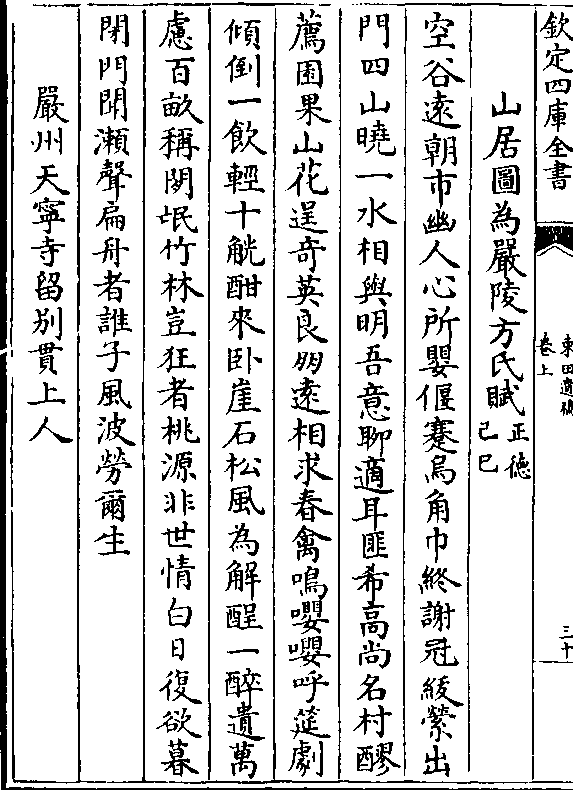 欽定四庫全書
東田遺稿
卷上
三十
山居圖為嚴陵方氏賦正德
己巳
空谷遠朝市幽人心所嬰偃蹇烏角巾終謝冠緌縈出
門四山曉一水相與明吾意聊適耳匪希高尚名村醪
薦園果山花逞奇英良朋遠相求春禽鳴嚶嚶呼筵劇
傾倒一飲輕十觥酣來卧崖石松風為解酲一醉遺萬
慮百畝稱閑氓竹林豈狂者桃源非世情白日復欲暮
閉門聞瀬聲扁舟者誰子風波勞爾生
嚴州天寧寺留别貫上人